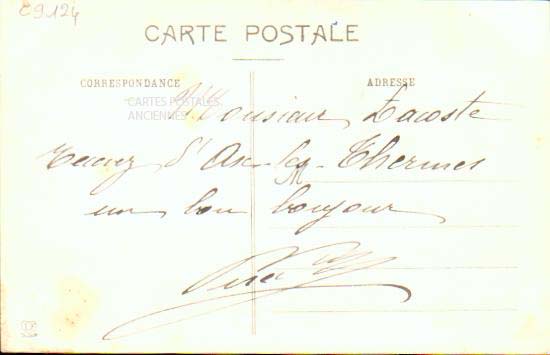 C9.124
CARTE POSTALE
CORRESPONDANCE
ADRESSE
CARTES POSTALES
ANCIENNES
Monsieur Lacoste
d'Ax-les-Thermes
un bon bonjour